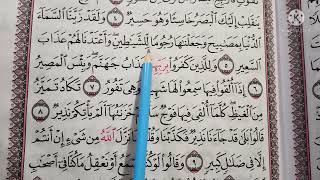 يَنقَلِبْ إِلَيْكَ ٱلْبَصَرُ خَاسِئًا وَهُوَ حَسِيرٌ ٤ وَلَقَدْ زَيَّنَّا ٱلسَّمَآءَ
ٱلدُّنْيَا بِمَصَٰبِيحَ وَجَعَلْنَٰهَا رُجُومًا لِّلشَّيَٰطِينِ وَأَعْتَدْنَا لَهُمْ عَذَابَ
ٱلسَّعِيرِ ٥ وَلِلَّذِينَ كَفَرُوا۟ بِرَبِّهِمْ عَذَابُ جَهَنَّمَ وَبِئْسَ ٱلْمَصِيرُ
٦ إِذَآ أُلْقُوا۟ فِيهَا سَمِعُوا۟ لَهَا وَهِىَ تَفُورُ ٧ تَكَادُ تَمَيَّزُ
مِنَ ٱلْغَيْظِ كُلَّمَآ أُلْقِىَ فِيهَا فَوْجٌ سَأَلَهُمْ خَزَنَتُهَآ أَلَمْ يَأْتِكُمْ نَذِيرٌ ٨
قَالُوا۟ بَلَىٰ قَدْ جَآءَنَا نَذِيرٌ فَكَذَّبْنَا وَقُلْنَا مَا نَزَّلَ ٱللَّهُ مِن شَىْءٍ إِنْ أَنتُمْ
إِلَّا فِى ضَلَٰلٍ كَبِيرٍ ٩ وَقَالُوا۟ لَوْ كُنَّا نَسْمَعُ أَوْ نَعْقِلُ مَا كُنَّا فِىٓ أَصْحَٰبِ